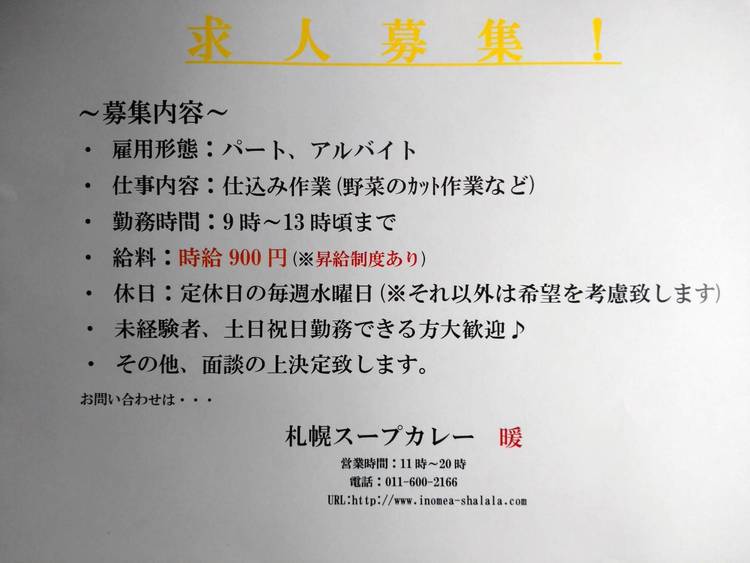 求人募集！
～募集内容～
・ 雇用形態：パート、アルバイト
・ 仕事内容：仕込み作業(野菜のｶｯﾄ作業など)
・ 勤務時間：9時～13時頃まで
・ 給料：時給900円(※昇給制度あり)
・ 休日：定休日の毎週水曜日(※それ以外は希望を考慮致します)
・ 未経験者、土日祝日勤務できる方大歓迎♪
・ その他、面談の上決定致します。
お問い合わせは・・・
札幌スープカレー 暖
営業時間：11時～20時
電話：011-600-2166
URL:http://www.inomea-shalala.com